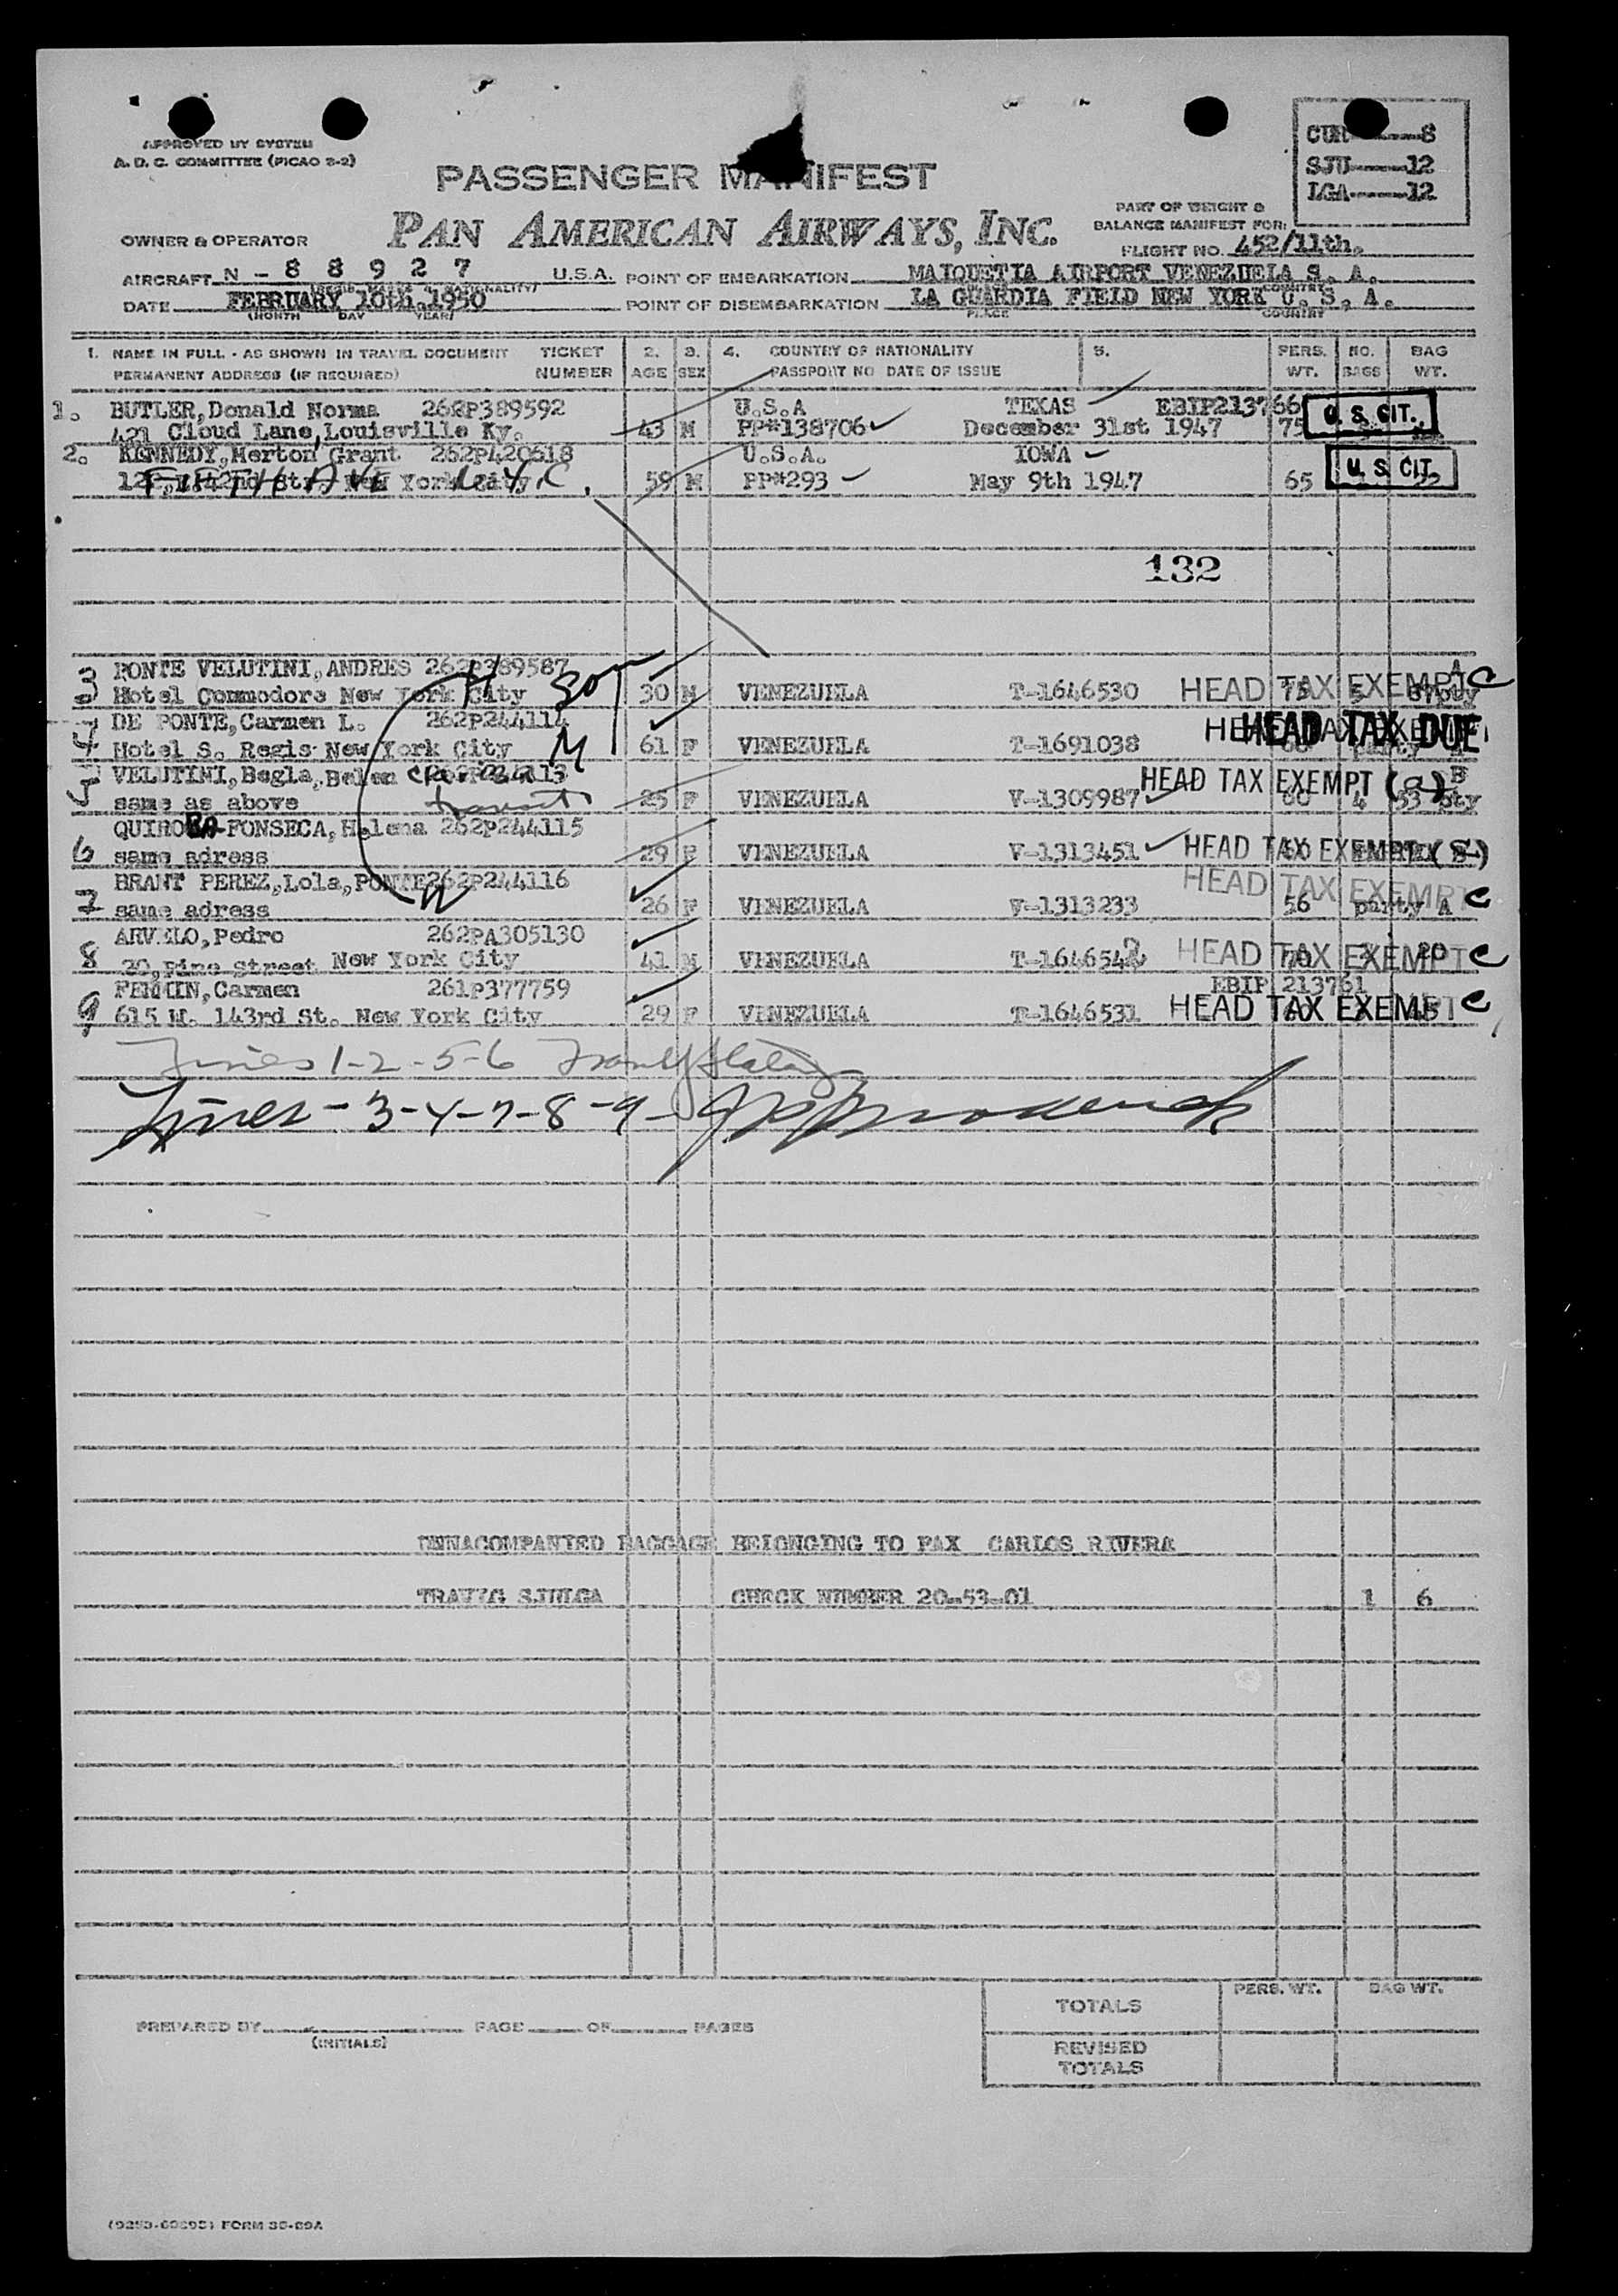 APPROVED BY SYSTEM
A. D. C. COMMITTEE (PICAO 2-2)
CUR 8
SJU-----12
LGA-----12
PASSENGER MANIFEST
PAN AMERICAN AIRWAYS, INC.
PART OF WEIGHT &
BALANCE MANIFEST FOR:
OWNER & OPERATOR
FLIGHT NO. 452/11th.
AIRCRAFT N - 8 8 9 2 7 U.S.A. POINT OF EMBARKATION MAIQUETIA AIRPORT VENEZUELA S. A.
DATE FEBRUARY 10th.1950 POINT OF DISEMBARKATION LA GUARDIA FIELD NEW YORK U. S. A.
(MONTH DAY YEAR) PLACE COUNTRY
1. NAME IN FULL - AS SHOWN IN TRAVEL DOCUMENT TICKET 2. 3. 4. COUNTRY OF NATIONALITY 5. PERS. NO. BAG
PERMANENT ADDRESS (IF REQUIRED) NUMBER AGE SEX PASSPORT NO DATE OF ISSUE WT. BAGS WT.
1. BUTLER,Donald Norma 262P389592 U.S.A TEXAS EBIP213766
421 Cloud Lane,Louisville Ky. 43 M PP#138706 December 31st 1947 75 U. S. CIT.
2. KENNEDY,Merton Grant 262P420618 U.S.A. IOWA
FIFTH AVE N.Y.C. 59 M PP#293 May 9th 1947 65 U. S. CIT.
132
3 PONTE VELUTINI,ANDRES 262P389587 A
Hotel Commodore New York City Son 30 M VENEZUELA T-1646530 HEAD TAX EXEMPT C
4 DE PONTE,Carmen L. 262P244114
Hotel S. Regis New York City M 61 F VENEZUELA T-1691038 HEAD TAX DUE
5 VELUTINI,Begla,Belen HEAD TAX EXEMPT (a) B
same as above transit 25 F VENEZUELA V-1309987 60 4 53 pty
QUIROBA-FONSECA,Helena 262P244115
6 same adress 29 F VENEZUELA V-1313451 HEAD TAX EXEMPT
BRANT PEREZ,Lola,PONTE262P244116 HEAD TAX EXEMPT C
7 same adress 26 F VENEZUELA V-1313233 56 party A
ARVELO,Pedro 262PA305130
8 20,Pine Street New York City 41 M VENEZUELA T-1646542 HEAD TAX EXEMPT C 20
FERMIN,Carmen 261P377759 EBIP 213761
9 615 W. 143rd St. New York City 29 F VENEZUELA T-1646531 HEAD TAX EXEMPT C
Lines 1-2-5-6
Lines-3-4-7-8-9-
UNNACOMPANIED BAGGAGE BELONGING TO PAX CARLOS RIVERA
CHECK NUMBER 20-53-01 1 6
TOTALS PERS. WT. BAG WT.
PREPARED BY PAGE OF PAGES
(INITIALS)
REVISED
TOTALS
FORM